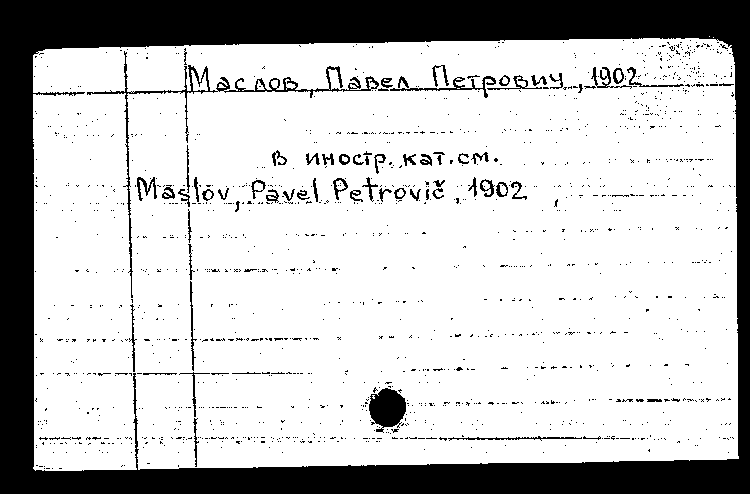 Маслов, Павел Петрович, 1902
в иностр. кат. см.
Maslov, Pavel Petrovič, 1902